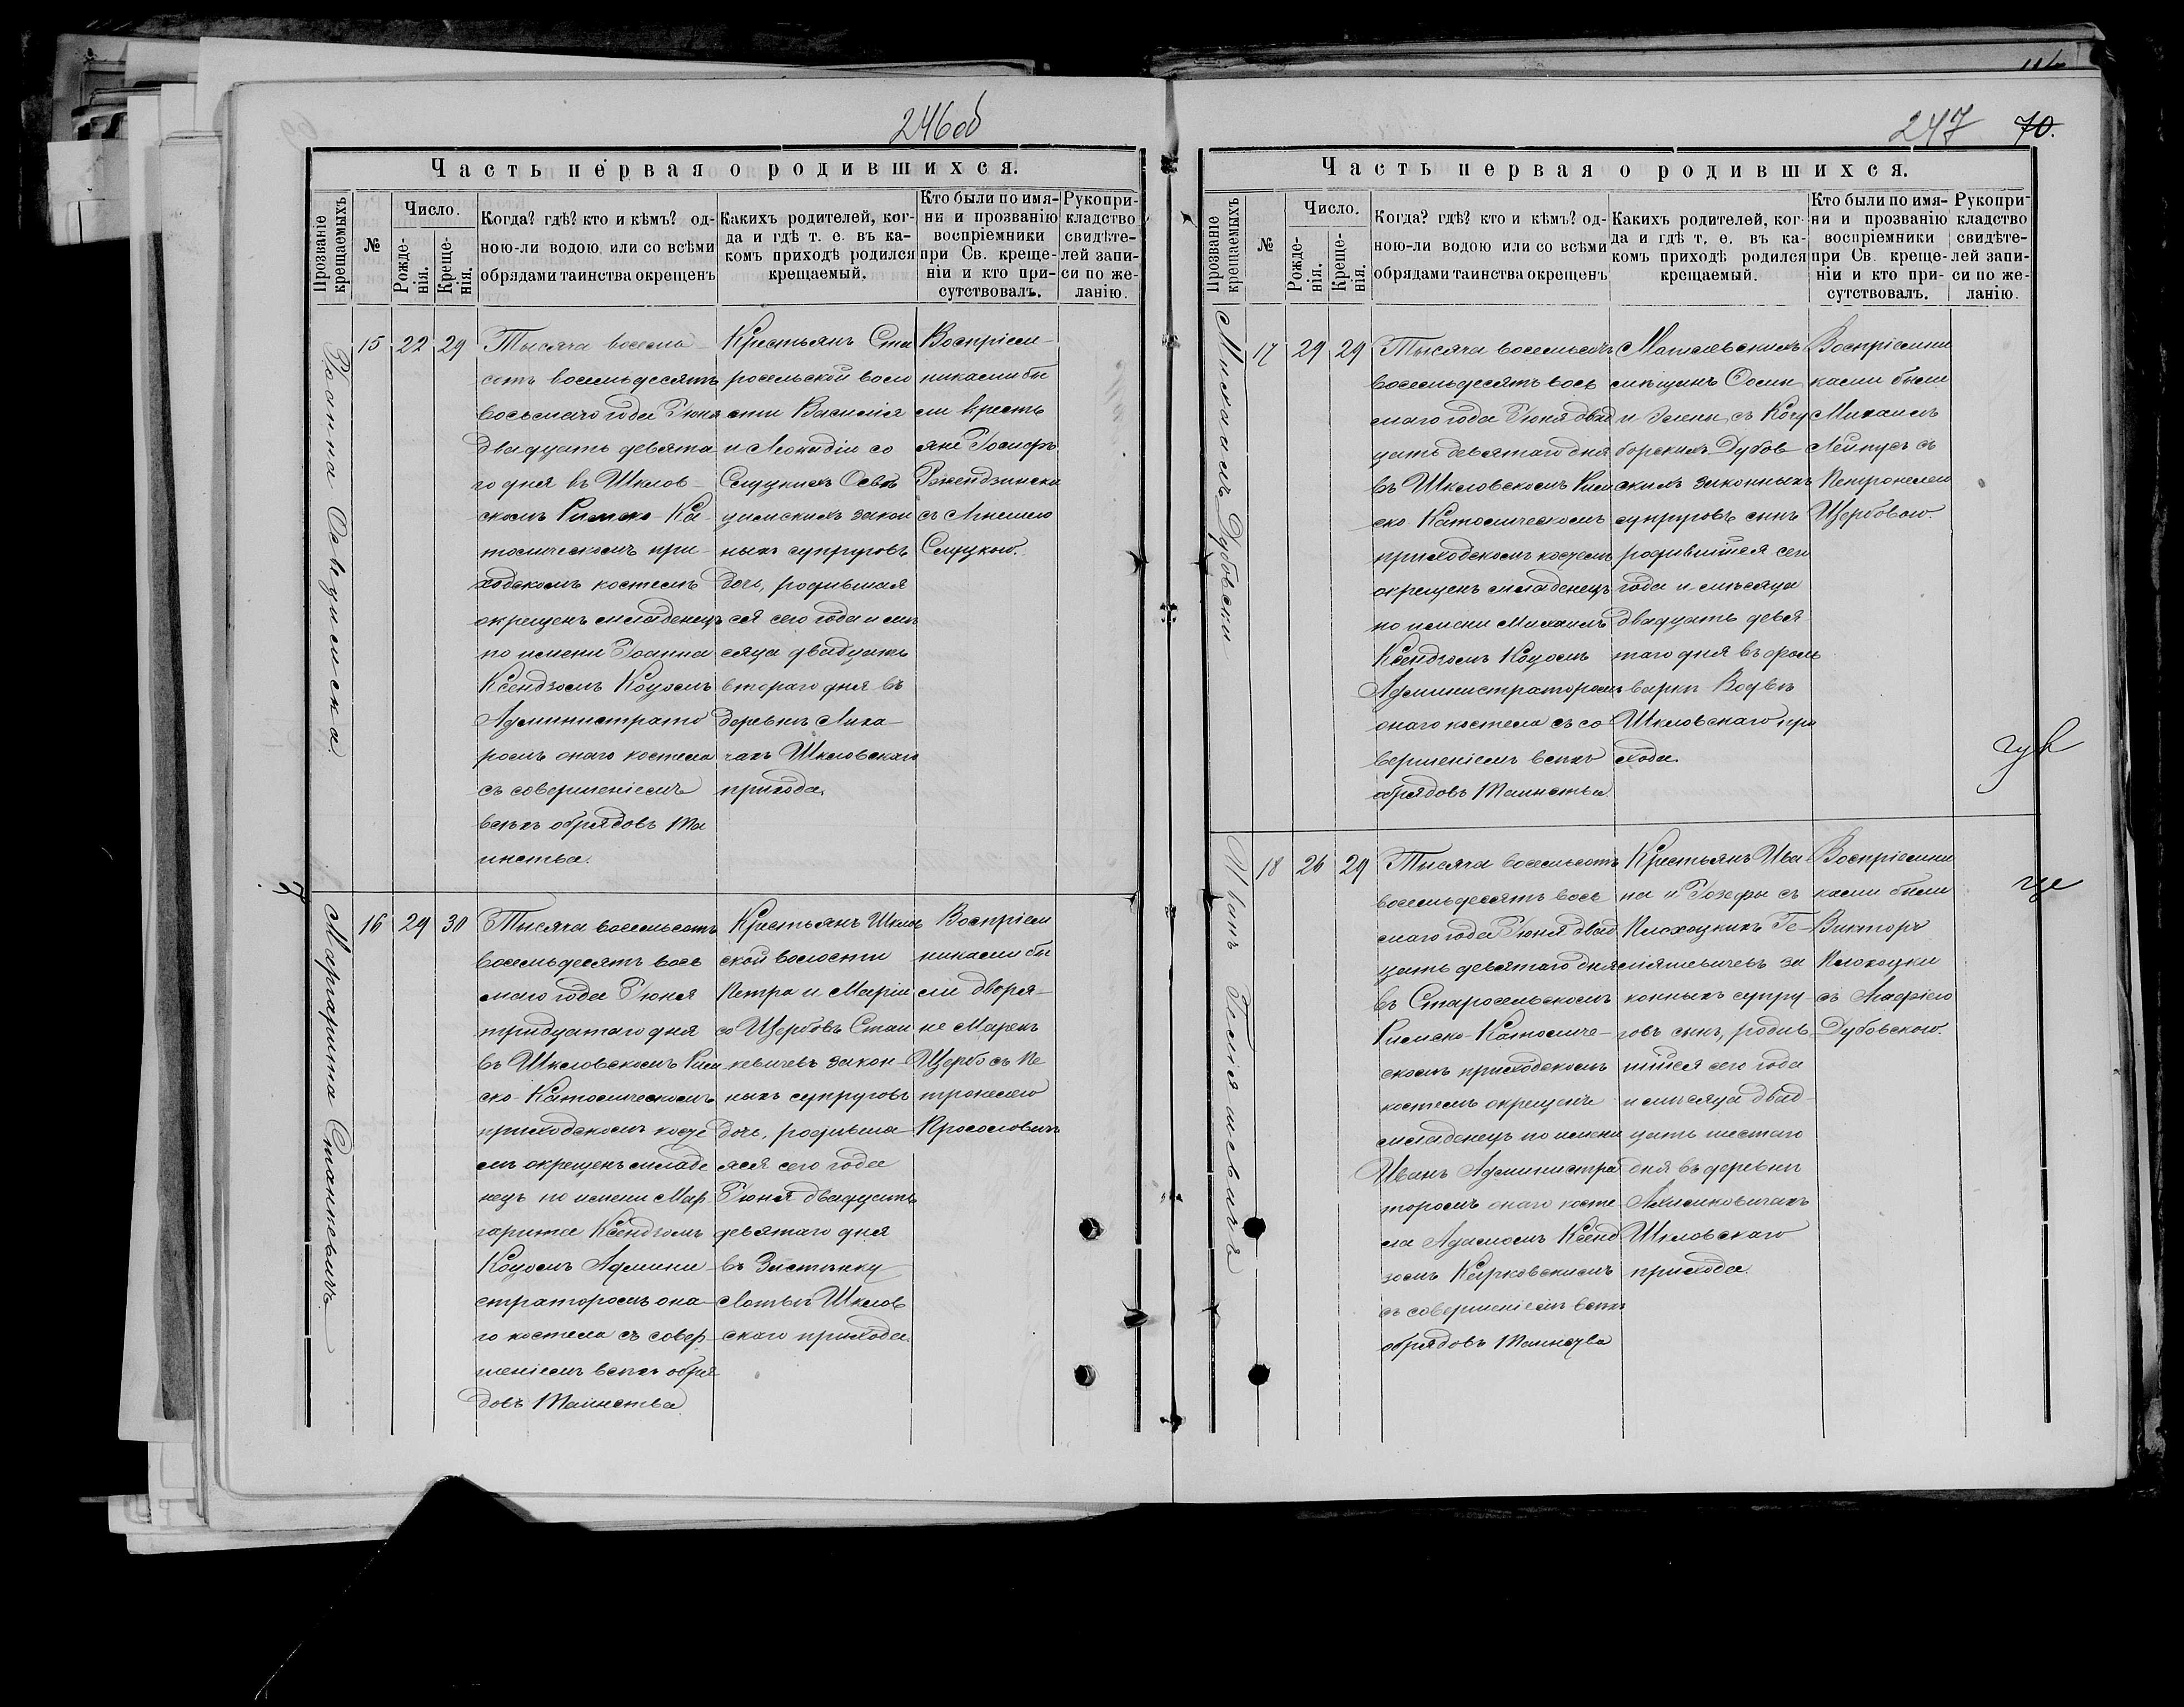 246об
Часть первая о родившихся.
Прозваніе крещаемыхъ
№
Число.
Рожде-
нія.
Креще-
нія.
Когда? гдѣ? кто и кѣмъ? од-
ною-ли водою или со всѣми
обрядами таинства окрещенъ
Какихъ родителей, ког-
да и гдѣ т. е. въ ка-
комъ приходѣ родился
крещаемый.
Кто были по имя-
ни и прозванію
воспріемники
при Св. креще-
ніи и кто при-
сутствовалъ.
Рукопри-
кладство
свидѣте-
лей запи-
си по же-
ланію.
Іоанна
15
22
29
Тысяча восемь
сотъ восемьдесятъ
восьмаго года Іюня
двадцать девята
го дня въ Шклов-
скомъ Римско-Ка-
толическомъ при-
ходскомъ костелѣ
окрещенъ младенецъ
по имени Іоанна
Ксендзомъ Коцомъ
Администрато
ромъ онаго костела
съ совершеніемъ
всѣхъ обрядовъ Та
инства.
Крестьянъ Ста
росельской воло
сти Василія
и Леокадіи со
Слуцкихъ
законн
ныхъ супруговъ
дочь, родившая
ся сего года и мѣ
сяца двадцать
втораго дня въ
деревнѣ Лиха-
чахъ Шкловскаго
прихода.
Воспріем-
никами бы
ли кресть
яне Іосифъ
съ Агнешею
Слуцкою.
Маргарита Станкевичъ
16
29
30
Тысяча восемьсотъ
восемьдесятъ вось
маго года Іюня
тридцатаго дня
въ Шкловскомъ Рим
ско-Католическомъ
приходскомъ косте
лѣ окрещенъ младе
нецъ по имени Мар
гарита Ксендзомъ
Коцомъ Админи
страторомъ она-
го костела съ совер-
шеніемъ всѣхъ обря
довъ Таинства
Крестьянъ Шклов
ской волости
Петра и Маріи
со Щербовъ Стан
кевичевъ закон-
ныхъ супруговъ
дочь, родивша
яся сего года
Іюня двадцать
девятаго дня
въ Застѣнку
Лотвѣ Шклов
скаго прихода.
Воспріем
никами бы
ли дворя-
не Марекъ
Щербо съ Пе
тронелею
247 70.
Часть первая о родившихся.
Прозваніе крещаемыхъ
№
Число.
Рожде-
нія.
Креще-
нія.
Когда? гдѣ? кто и кѣмъ? од-
ною-ли водою или со всѣми
обрядами таинства окрещенъ
Какихъ родителей, ког-
да и гдѣ т. е. въ ка-
комъ приходѣ родился
крещаемый.
Кто были по имя-
ни и прозванію
воспріемники
при Св. креще-
ніи и кто при-
сутствовалъ.
Рукопри-
кладство
свидѣте-
лей запи-
си по же-
ланію.
Михаилъ Дубовски
17
29
29
Тысяча восемьсотъ
восемьдесятъ вось
маго года Іюня двад
цать девятаго дня
въ Шкловскомъ Рим
ско-Католическомъ
приходскомъ костелѣ
окрещенъ младенецъ
по имени Михаилъ
Ксендзомъ Коцомъ
Администраторомъ
онаго костела съ со
вершеніемъ всѣхъ
обрядовъ Таинства
Могилевскихъ
мѣщанъ Осипа
и Елены съ
Дубов
скихъ законныхъ
супруговъ сынъ
родившійся сего
года и мѣсяца
двадцать девя
таго дня въ фоль
варкѣ
Шкловскаго при
хода.
Воспріемни
ками были
Михаилъ
съ
Петронелею
Щербовою.
Иванъ
18
26
29
Тысяча восемьсотъ
восемьдесятъ вось
маго года Іюня двад
цать девятаго дня
въ Старосельскомъ
Римско-Католиче-
скомъ приходскомъ
костелѣ окрещенъ
младенецъ по имени
Иванъ Администра
торомъ онаго косте
ла Адамомъ Ксенд
зомъ Карковскимъ
съ совершеніемъ всѣхъ
обрядовъ Таинства
Крестьянъ Ива
на и Іозефы съ
Плохоцкихъ
за
конныхъ супру
говъ сынъ, родив
шійся сего года
и мѣсяца двад
цать шестаго
дня въ деревнѣ
Шкловскаго
прихода.
Воспріемни
ками были
Викторъ
Плохоцки
съ
Дубовскою.